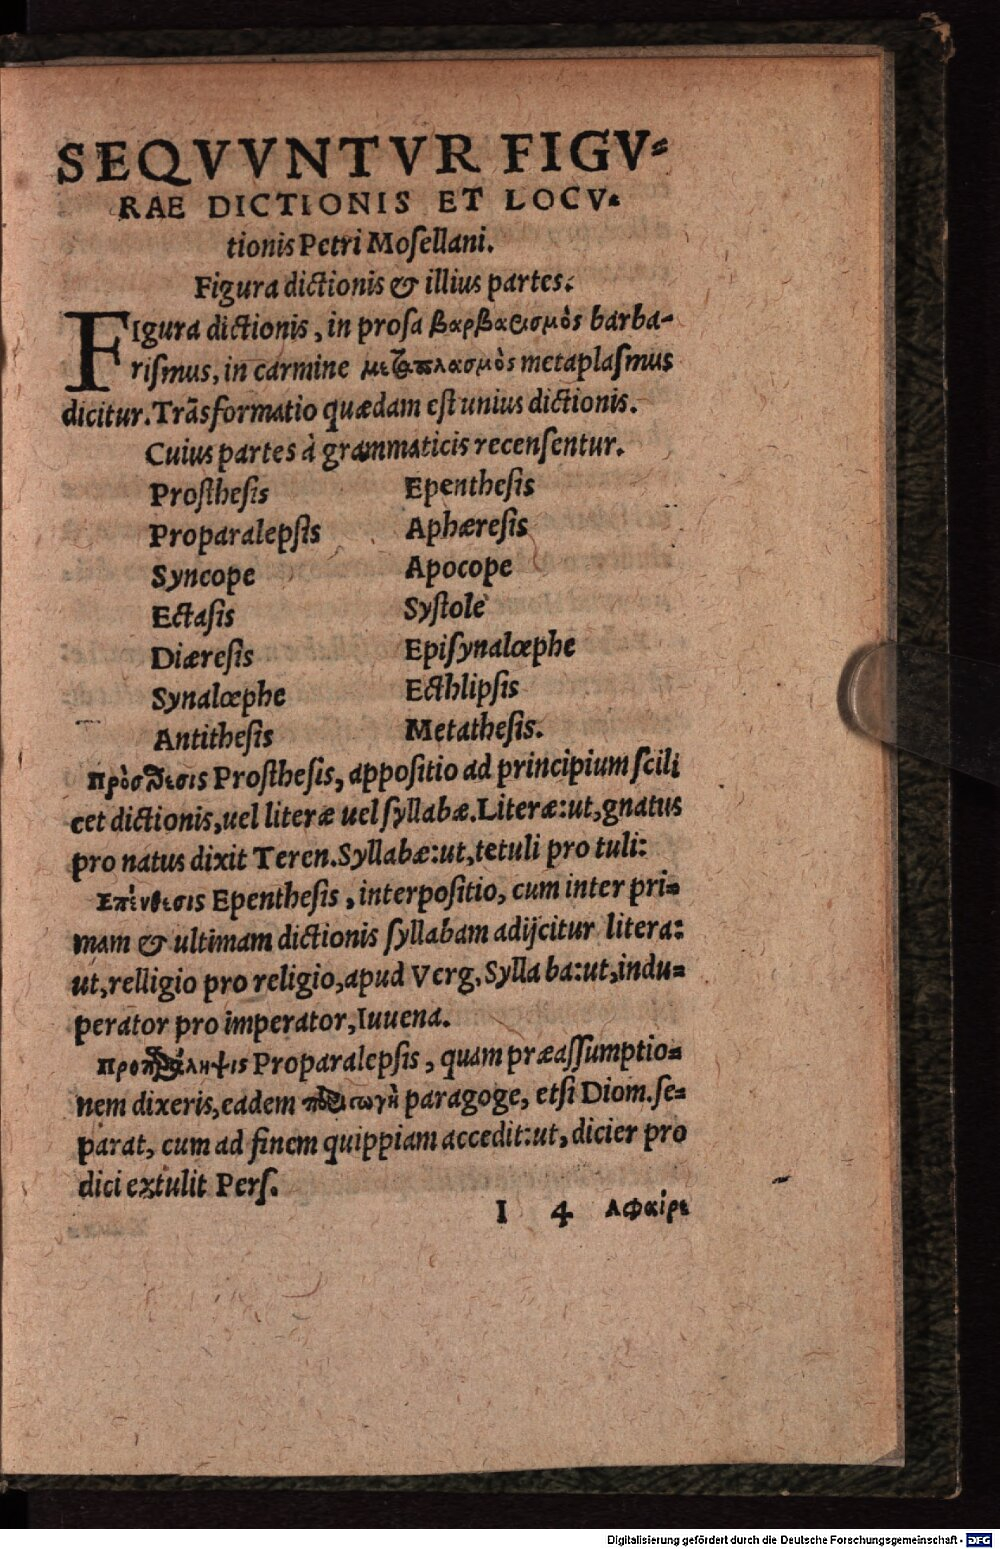 SEQVVNTVR FIGV-
RAE DICTIONIS ET LOCV-
tionis Petri Moſellani.
Figura dictionis & illius partes.
FIgura dictionis, in proſa βαρβαρισμὸς barba-
riſmus, in carmine μεταπλασμὸς metaplaſmus
dicitur. Trãsformatio quædam eſt unius dictionis.
Cuius partes à grammaticis recenſentur.
Proſtheſis Epentheſis
Proparalepſis Aphæreſis
Syncope Apocope
Ectaſis Syſtole
Diæreſis Epiſynalœphe
Synalœphe Ecthlipſis
Antitheſis Metatheſis.
πρὸσθεσις Proſtheſis, appoſitio ad principium ſcili
cet dictionis, uel literæ uel ſyllabæ. Literæ: ut, gnatus
pro natus dixit Teren. Syllabæ: ut, tetuli pro tuli:
Επένθεσις Epentheſis, interpoſitio, cum inter pri-
mam & ultimam dictionis ſyllabam adijcitur litera:
ut, relligio pro religio, apud Verg. Sylla ba: ut, indu-
perator pro imperator, Iuuena.
προπαράληψις Proparalepſis, quam præaſſumptio-
nem dixeris, eadem παραγωγὴ paragoge, etſi Diom. ſe-
parat, cum ad finem quippiam accedit: ut, dicier pro
dici extulit Perſ.
I 4 Αφαίρε
Digitalisierung gefördert durch die Deutsche Forschungsgemeinschaft - DFG